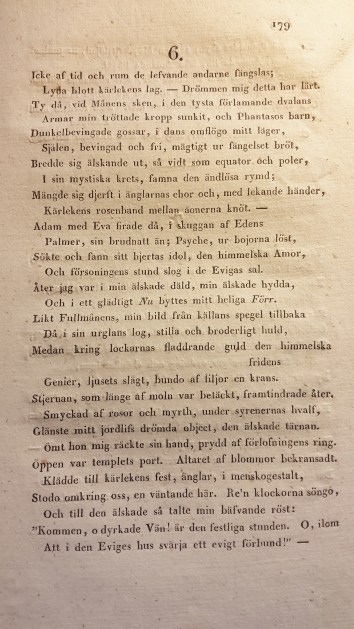 179
6.
Icke af tid och rum de lefvande andarne fängslas;
Lyda blott kärlekens lag. — Drömmen mig detta har lärt.
Ty då, vid Månens sken, i den tysta förlamande dvalans
Armar min tröttade kropp sunkit, och Phantasos barn,
Dunkelbevingade gossar, i dans omflögo mitt läger,
Själen, bevingad och fri, mägtigt ur fängelset bröt,
Bredde sig älskande ut, så vidt som equator och poler,
I sin mystiska krets, famna den ändlösa rymd;
Mängde sig djerft i änglarnas chor och, med lekande händer,
Kärlekens rosenband mellan äonerna knöt. —
Adam med Eva firade då, i skuggan af Edens
Palmer, sin brudnatt än; Psyche, ur bojorna löst,
Sökte och fann sitt hjertas idol, den himmelska Amor,
Och försoningens stund slog i de Evigas sal.
Åter jag var i min älskade däld, min älskade hydda,
Och i ett gladtigt Nu byttes mitt heliga Förr.
Likt Fullmånens, min bild från källans spegel tillbaka
Då i sin urglans log, stilla och broderligt huld,
Medan kring lockornas fladdrande guld den himmelska
fridens
Genier, ljusets slägt, bundo af liljor en krans.
Stjernan, som länge af moln var beläckt, framtindrade åter.
Smyckad af rosor och myrth, under syrenernas hvalf,
Glänste mitt jordlifs drömda object, den älskade tärnan.
Ömt hon mig räckte sin hand, prydd af förlofningens ring.
Öppen var templets port. Altaret af blommor bekransadt.
Klädde till kärlekens fest, änglar, i menskogestalt,
Stodo omkring oss, en väntande här. Re'n klockorna söngo,
Och till den älskade så talte min bäfvande röst:
"Kommen, o dyrkade Vän! är den festliga stunden. O, ilom
Att i den Eviges hus svärja ett evigt förbund!" —